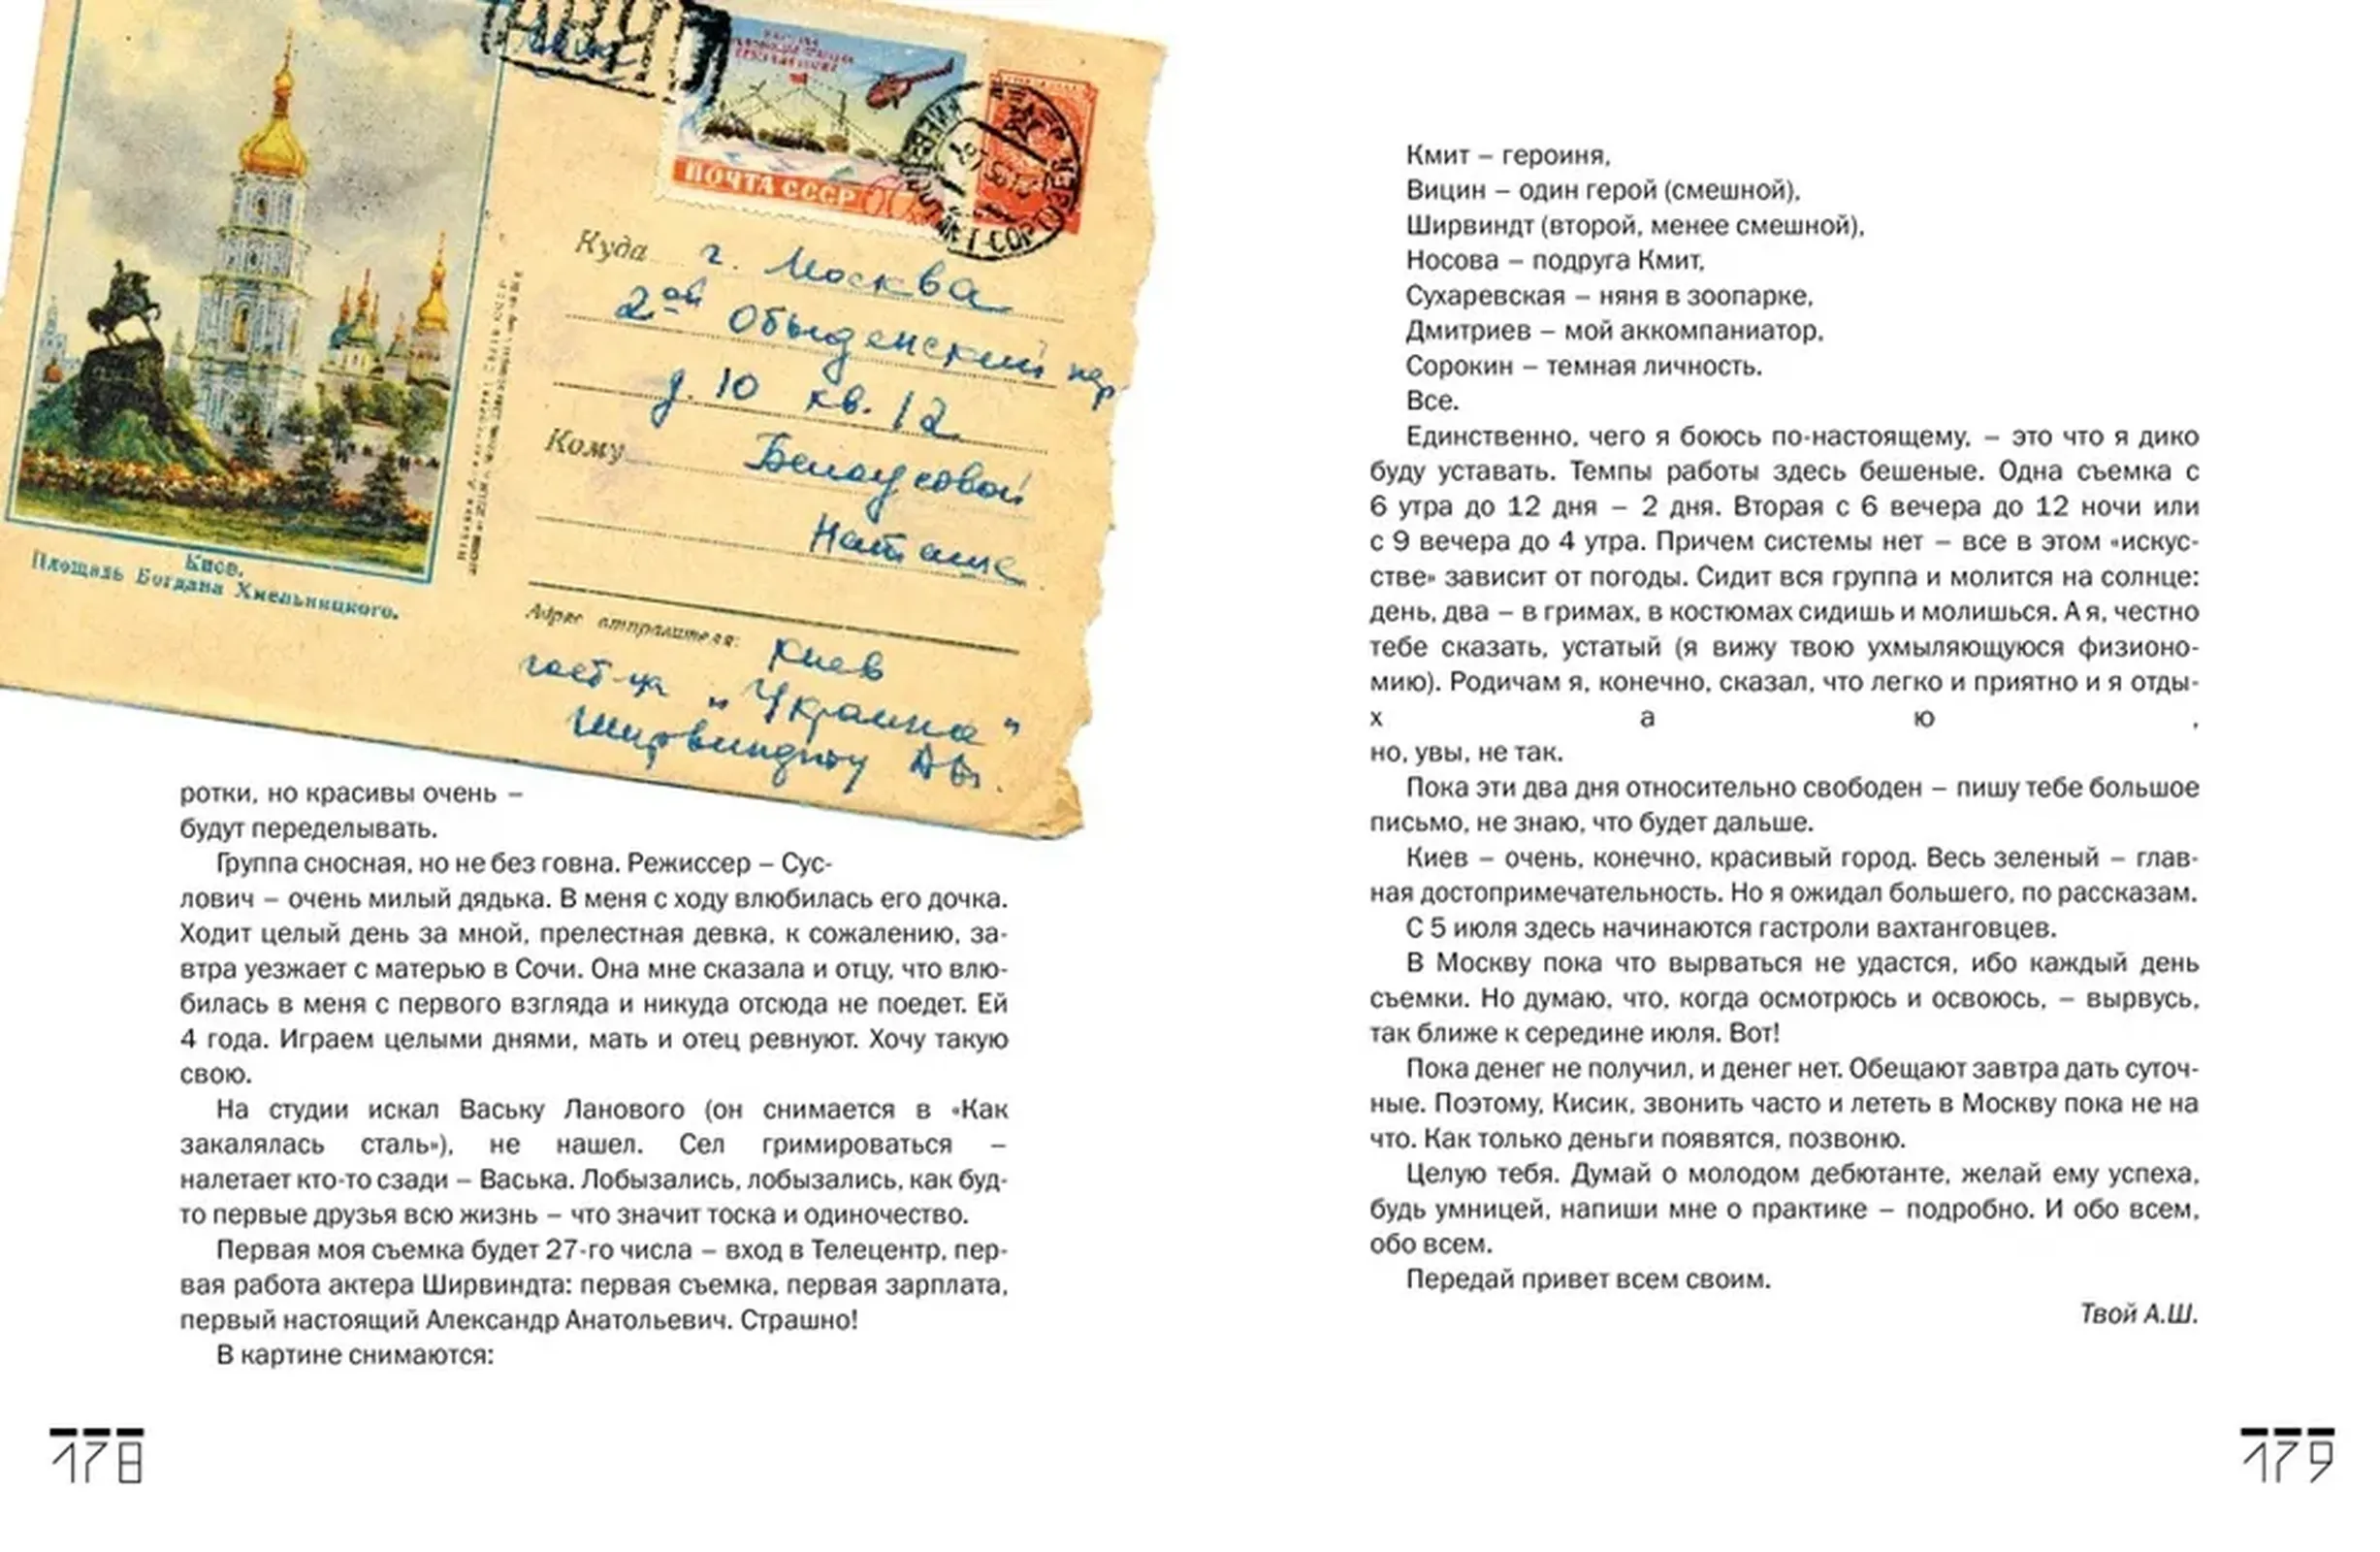 ПОЧТА СССР
Куда г. Москва
2ой Обыденский пер
д. 10 кв. 12
Кому Белоусовой
Наташе
Киев.
Площадь Богдана Хмельницкого.
Адрес отправителя: Киев
гост-ца „Украина"
Ширвиндту
ротки, но красивы очень –
будут переделывать.
Группа сносная, но не без говна. Режиссер – Сус-
лович – очень милый дядька. В меня с ходу влюбилась его дочка.
Ходит целый день за мной, прелестная девка, к сожалению, за-
втра уезжает с матерью в Сочи. Она мне сказала и отцу, что влю-
билась в меня с первого взгляда и никуда отсюда не поедет. Ей
4 года. Играем целыми днями, мать и отец ревнуют. Хочу такую
свою.
На студии искал Ваську Ланового (он снимается в «Как
закалялась сталь»), не нашел. Сел гримироваться –
налетает кто-то сзади – Васька. Лобызались, лобызались, как буд-
то первые друзья всю жизнь – что значит тоска и одиночество.
Первая моя съемка будет 27-го числа – вход в Телецентр, пер-
вая работа актера Ширвиндта: первая съемка, первая зарплата,
первый настоящий Александр Анатольевич. Страшно!
В картине снимаются:
178
Кмит – героиня,
Вицин – один герой (смешной),
Ширвиндт (второй, менее смешной),
Носова – подруга Кмит,
Сухаревская – няня в зоопарке,
Дмитриев – мой аккомпаниатор,
Сорокин – темная личность.
Все.
Единственно, чего я боюсь по-настоящему, – это что я дико
буду уставать. Темпы работы здесь бешеные. Одна съемка с
6 утра до 12 дня – 2 дня. Вторая с 6 вечера до 12 ночи или
с 9 вечера до 4 утра. Причем системы нет – все в этом «искус-
стве» зависит от погоды. Сидит вся группа и молится на солнце:
день, два – в гримах, в костюмах сидишь и молишься. А я, честно
тебе сказать, устатый (я вижу твою ухмыляющуюся физионо-
мию). Родичам я, конечно, сказал, что легко и приятно и я отды-
х а ю ,
но, увы, не так.
Пока эти два дня относительно свободен – пишу тебе большое
письмо, не знаю, что будет дальше.
Киев – очень, конечно, красивый город. Весь зеленый – глав-
ная достопримечательность. Но я ожидал большего, по рассказам.
С 5 июля здесь начинаются гастроли вахтанговцев.
В Москву пока что вырваться не удастся, ибо каждый день
съемки. Но думаю, что, когда осмотрюсь и освоюсь, – вырвусь,
так ближе к середине июля. Вот!
Пока денег не получил, и денег нет. Обещают завтра дать суточ-
ные. Поэтому, Кисик, звонить часто и лететь в Москву пока не на
что. Как только деньги появятся, позвоню.
Целую тебя. Думай о молодом дебютанте, желай ему успеха,
будь умницей, напиши мне о практике – подробно. И обо всем,
обо всем.
Передай привет всем своим.
Твой А.Ш.
179